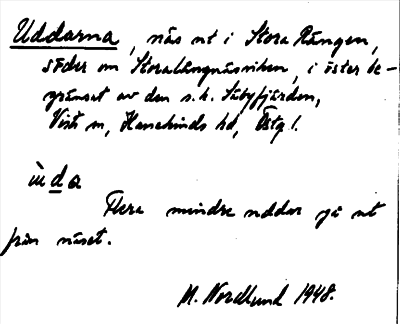 Uddarna, näs ut i Stora Rängen,
söder om Storalångnäsviken, i öster be-
gränset av den s.k. Säbyfjärden,
Vist sn, Hanekinds hd, Östg l.
ùda
Flera mindre uddar gå ut
från näset.
M. Nordlund 1948.